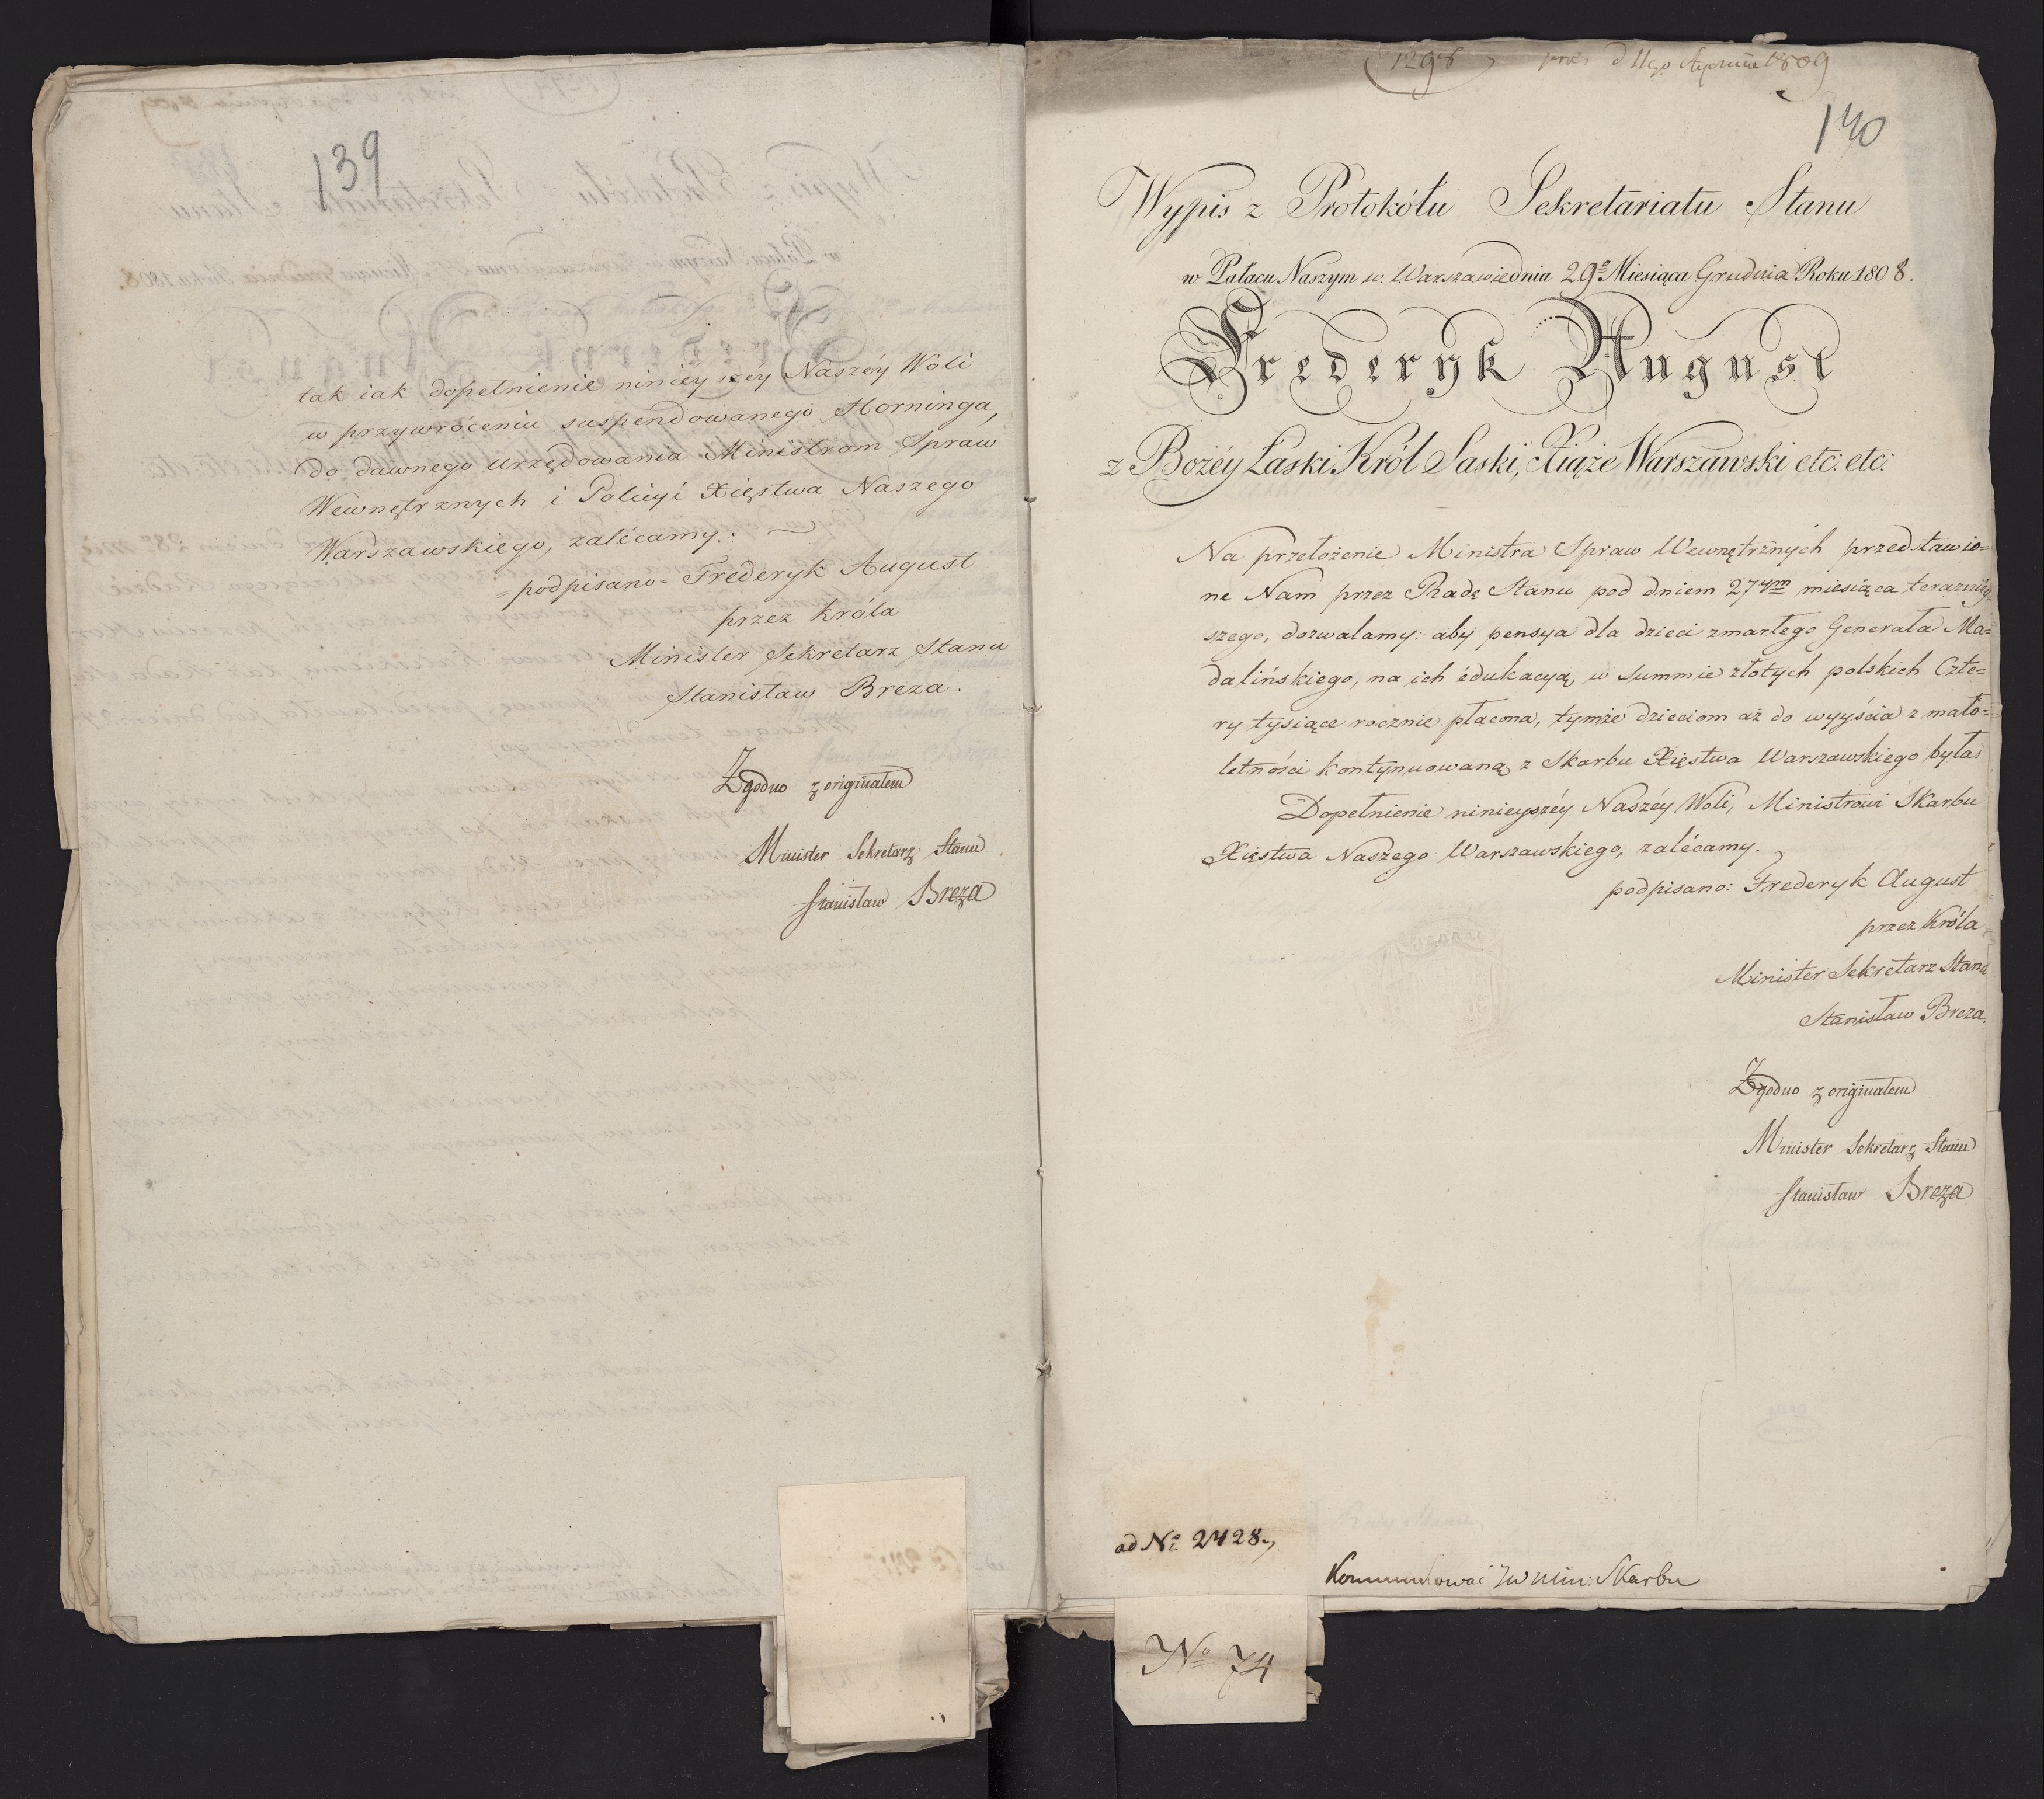 139
tak iak dopełnienie ninieyszéy Naszéy Woli
w przywróceniu suspendowanego Horninga,
do dawnego urzędowania Ministrom Spraw
Wewnętrznych i Policyi Xięstwa Naszego
Warszawskiego, zalécamy.
= podpisano = Frederyk August
przez Króla
Minister Sekretarz Stanu
Stanisław Breza.
Zgodno z originałem
Minister Sekretarz Stanu
Stanisław Breza
1298 prez d 11go Stycznia 1809
140
Wypis z Protokółu Sekretariatu Stanu
w Pałacu Naszym w Warszawie dnia 29º Miesiąca Grudnia Roku 1808.
Frederyk August
z Bożéy Łaski Król Saski, Xiąże Warszawski etc: etc:
Na przełożenie Ministra Spraw Wewnętrznych przedstawio=
ne Nam przez Radę Stanu pod dniem 27ym miesiąca teraznięy=
szego, dozwalamy: aby pensya dla dzieci zmarłego Generała Ma=
dalińskiego, na ich édukacyą, w summie złotych polskich Czte=
ry tysiące rocznie płacona, tymże dzieciom aż do wyyścia z mało=
letności kontynuowaną z Skarbu Xięstwa Warszawskiego była.
Dopełnienie ninieyszéy Naszéy Woli, Ministrowi Skarbu
Xięstwa Naszego Warszawskiego, zalécamy.
podpisano: Frederyk August
przez Króla
Minister Sekretarz Stanu
Stanisław Breza.
Zgodno z originałem
Minister Sekretarz Stanu
Stanisław Breza
ad Nº 2428.
Kommunikować JW Min: Skarbu
Nº 74